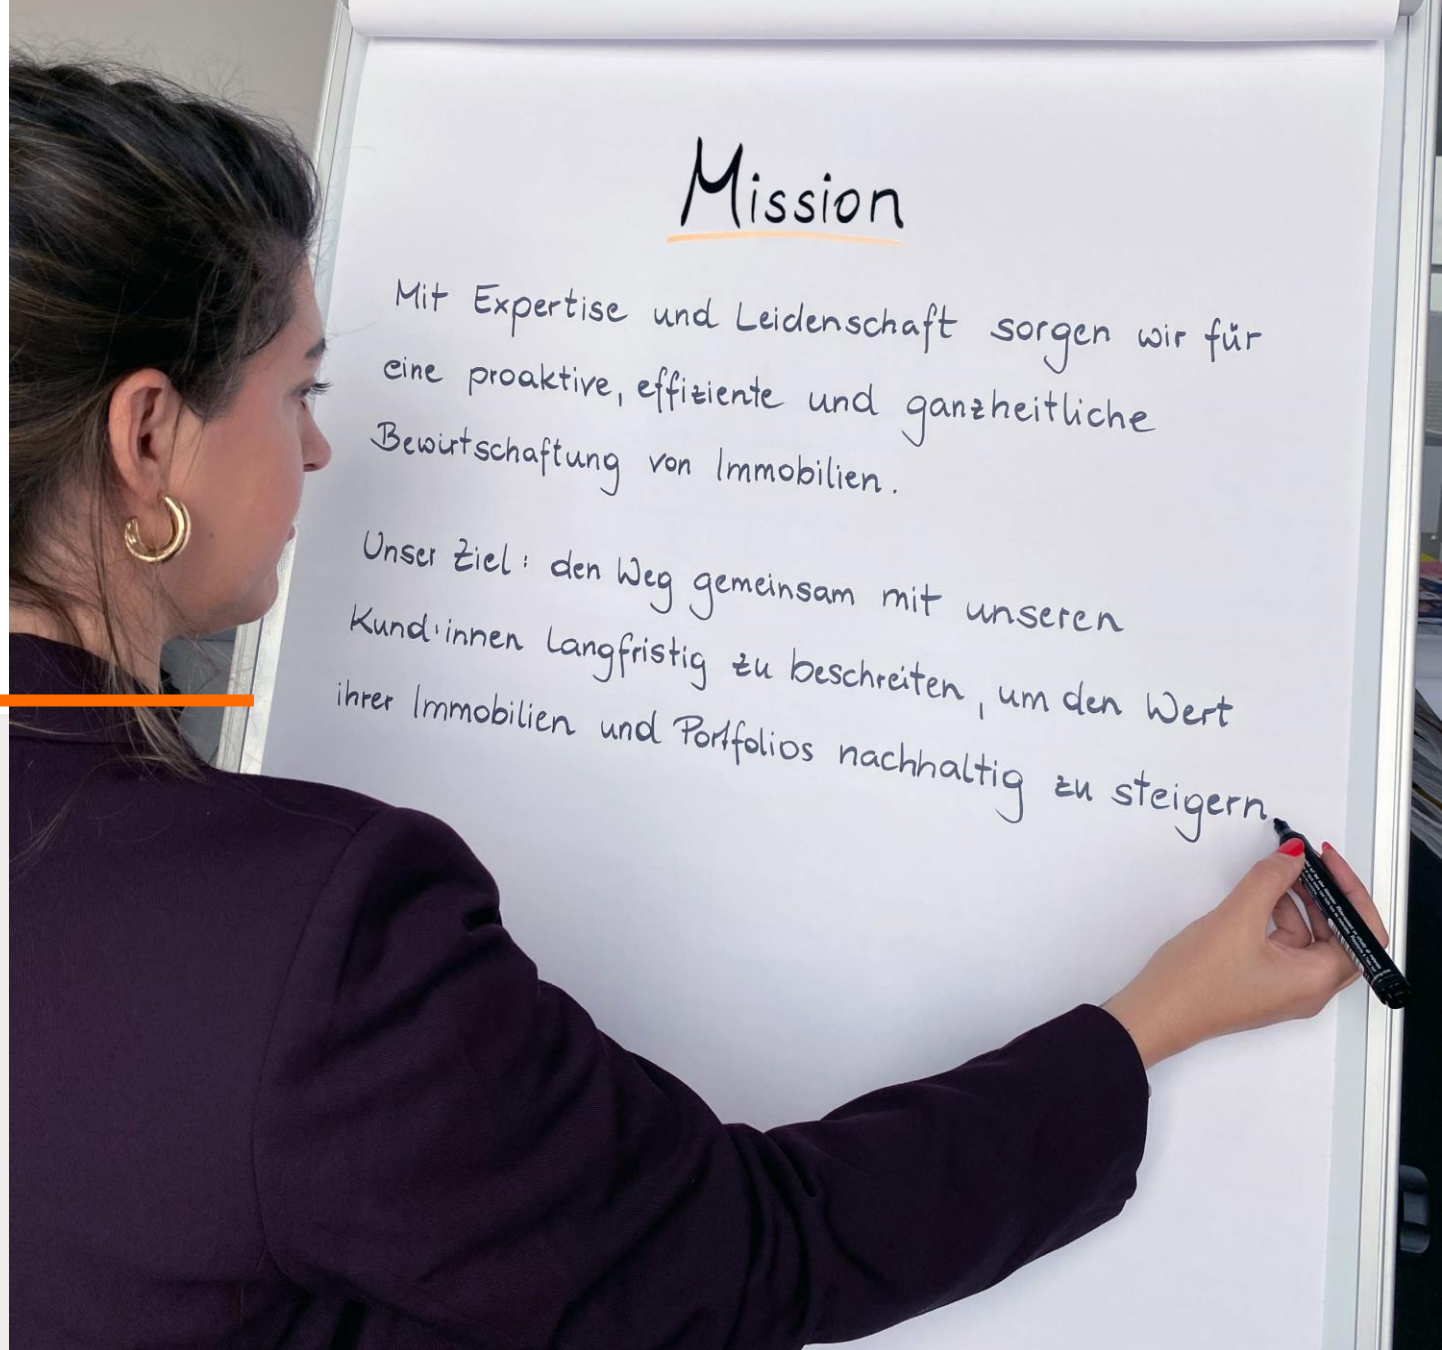 Mission
Mit Expertise und Leidenschaft sorgen wir für
eine proaktive, effiziente und ganzheitliche
Bewirtschaftung von Immobilien.
Unser Ziel: den Weg gemeinsam mit unseren
Kund:innen langfristig zu beschreiten, um den Wert
ihrer Immobilien und Portfolios nachhaltig zu steigern.